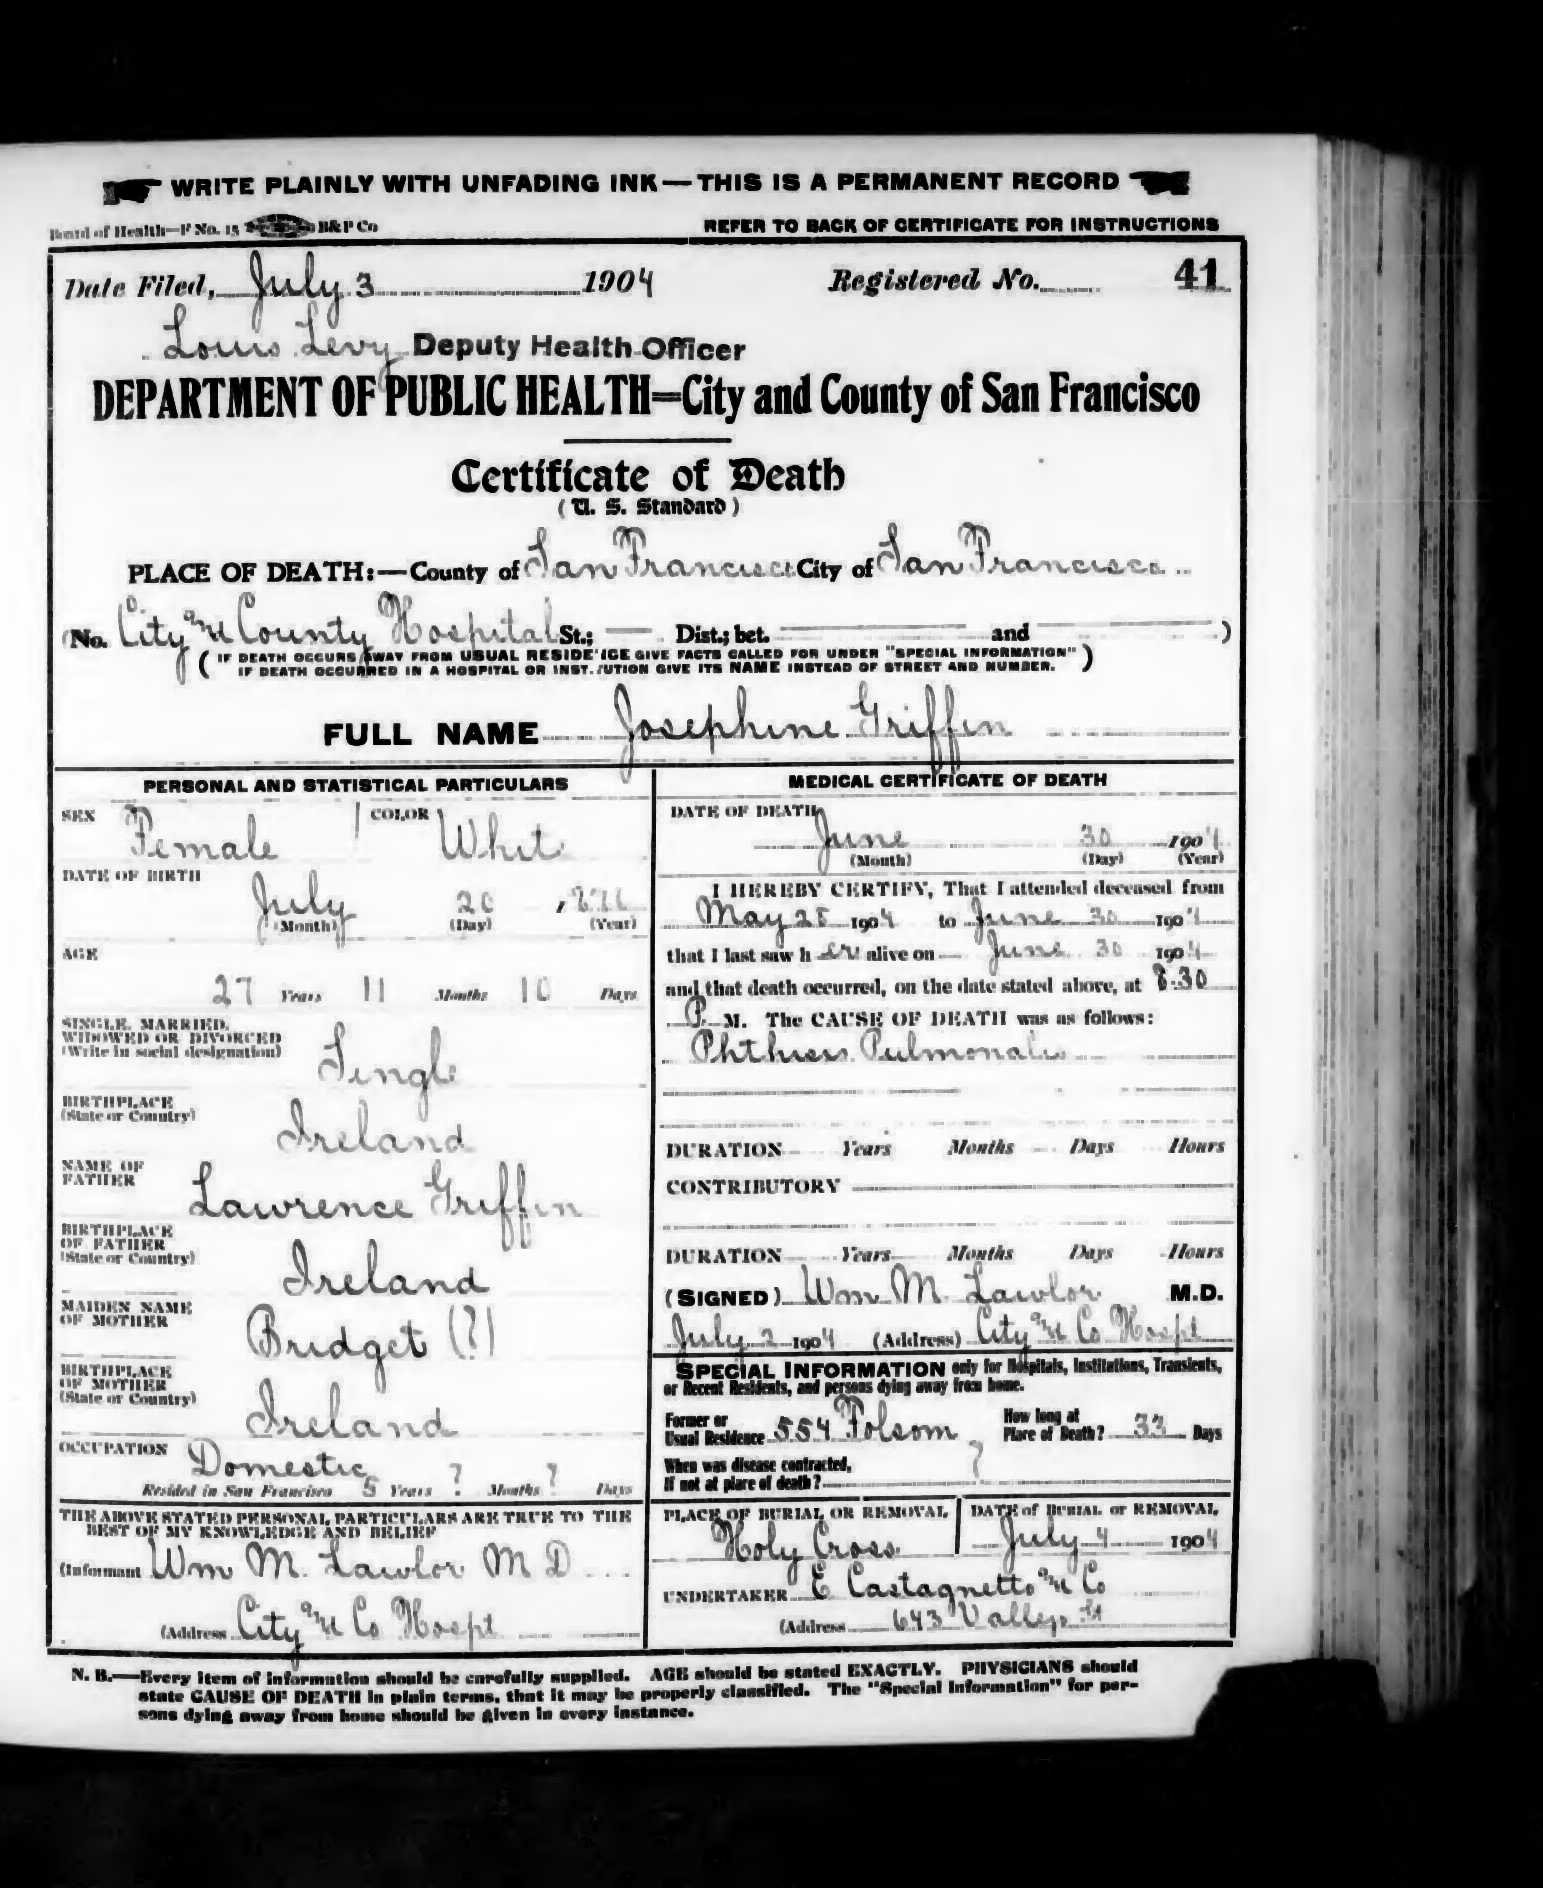 WRITE PLAINLY WITH UNFADING INK—THIS IS A PERMANENT RECORD
Board of Health—F No. 15 B&P Co REFER TO BACK OF CERTIFICATE FOR INSTRUCTIONS
Date Filed, July 3 1904 Registered No. 41
Louis Levy Deputy Health Officer
DEPARTMENT OF PUBLIC HEALTH=City and County of San Francisco
Certificate of Death
(U. S. Standard)
PLACE OF DEATH:—County of San Francisco City of San Francisco
(No. City and County Hospital St.; — Dist.; bet. and )
( IF DEATH OCCURS AWAY FROM USUAL RESIDENCE GIVE FACTS CALLED FOR UNDER "SPECIAL INFORMATION" )
IF DEATH OCCURRED IN A HOSPITAL OR INSTITUTION GIVE ITS NAME INSTEAD OF STREET AND NUMBER.
FULL NAME Josephine Griffin
PERSONAL AND STATISTICAL PARTICULARS
SEX Female COLOR White
DATE OF BIRTH
July 20 , 1876
(Month) (Day) (Year)
AGE
27 Years 11 Months 10 Days
SINGLE, MARRIED,
WIDOWED OR DIVORCED
(Write in social designation) Single
BIRTHPLACE
(State or Country) Ireland
NAME OF
FATHER Lawrence Griffin
BIRTHPLACE
OF FATHER
(State or Country) Ireland
MAIDEN NAME
OF MOTHER Bridget (?)
BIRTHPLACE
OF MOTHER
(State or Country) Ireland
OCCUPATION Domestic
Resided in San Francisco 5 Years ? Months ? Days
THE ABOVE STATED PERSONAL PARTICULARS ARE TRUE TO THE
BEST OF MY KNOWLEDGE AND BELIEF
(Informant Wm M. Lawlor M D
(Address City and Co Hospt
MEDICAL CERTIFICATE OF DEATH
DATE OF DEATH
June 30 1904
(Month) (Day) (Year)
I HEREBY CERTIFY, That I attended deceased from
May 28 1904 to June 30 1904
that I last saw h er alive on June 30 1904
and that death occurred, on the date stated above, at 8.30
P. M. The CAUSE OF DEATH was as follows:
Phthisis Pulmonalis
DURATION Years Months Days Hours
CONTRIBUTORY
DURATION Years Months Days Hours
(SIGNED) Wm M. Lawlor M.D.
July 2 1904 (Address) City and Co Hospt
SPECIAL INFORMATION only for Hospitals, Institutions, Transients,
or Recent Residents, and persons dying away from home.
Former or
Usual Residence 554 Folsom
How long at
Place of Death? 33 Days
When was disease contracted,
If not at place of death? ?
PLACE OF BURIAL OR REMOVAL
Holy Cross
DATE of BURIAL or REMOVAL
July 4 1904
UNDERTAKER E Castagnetto and Co
(Address 643 Vallejo St
N. B.—Every item of information should be carefully supplied. AGE should be stated EXACTLY. PHYSICIANS should
state CAUSE OF DEATH in plain terms, that it may be properly classified. The "Special Information" for per-
sons dying away from home should be given in every instance.